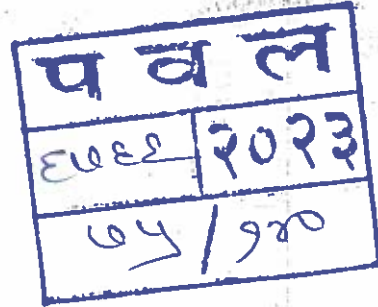 प व ल
६७६६ २०२३
७५/१२०